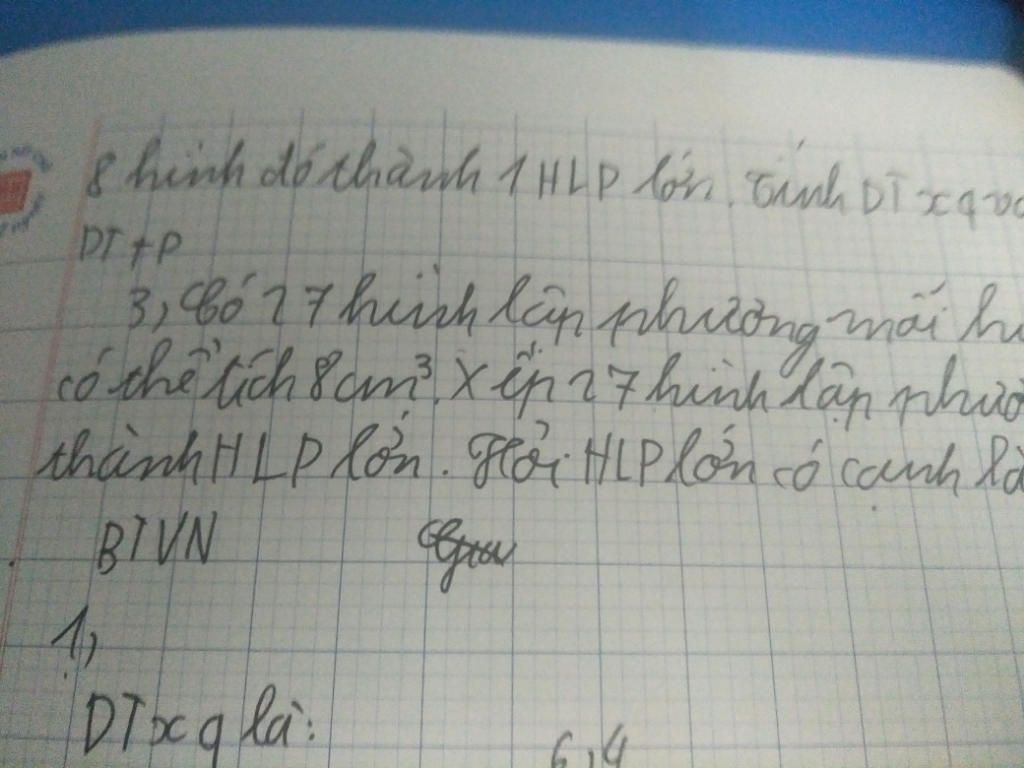 8 hình đó thành 1 HLP lớn. Tính DT xq
DT + P
3, Có 27 hình lập phương mỗi
có thể tích 8 cm³. Xếp 27 hình lập
thành HLP lớn. Hỏi HLP lớn có cạnh
BTVN
1,
DT xq là:
6,4